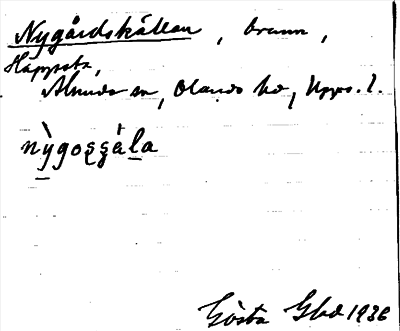 Nygårdskällan, brunn,
Häppsta,
Almunda sn, Olands hd, Upps. l.
nỳgoşşä̀la
Gösta Glad 1936